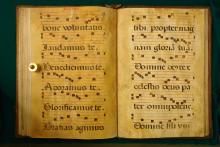 bone voluntatis
laudamus te.
Benedicimus te.
Adoramus te.
Glorificamus te.
Gratias agimus
tibi propter mag
nam gloria tua.
Domine deus rex
celestis deus pa
ter omnipotens.
Domine fili vni